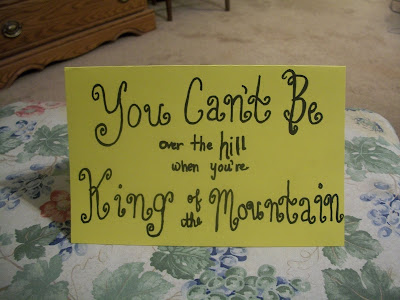 You Can't Be
over the hill
when you're
King of the Mountain